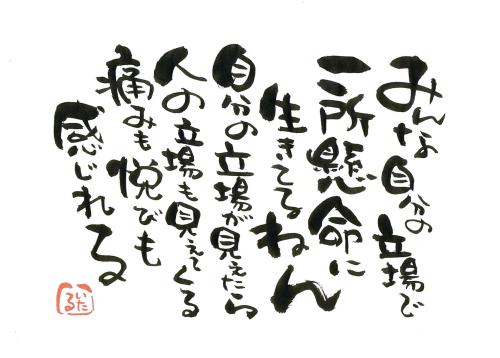 みんな自分の立場で
一所懸命に
生きてるねん
自分の立場が見えたら
人の立場も見えてくる
痛みも悦びも
感じれる
いたる